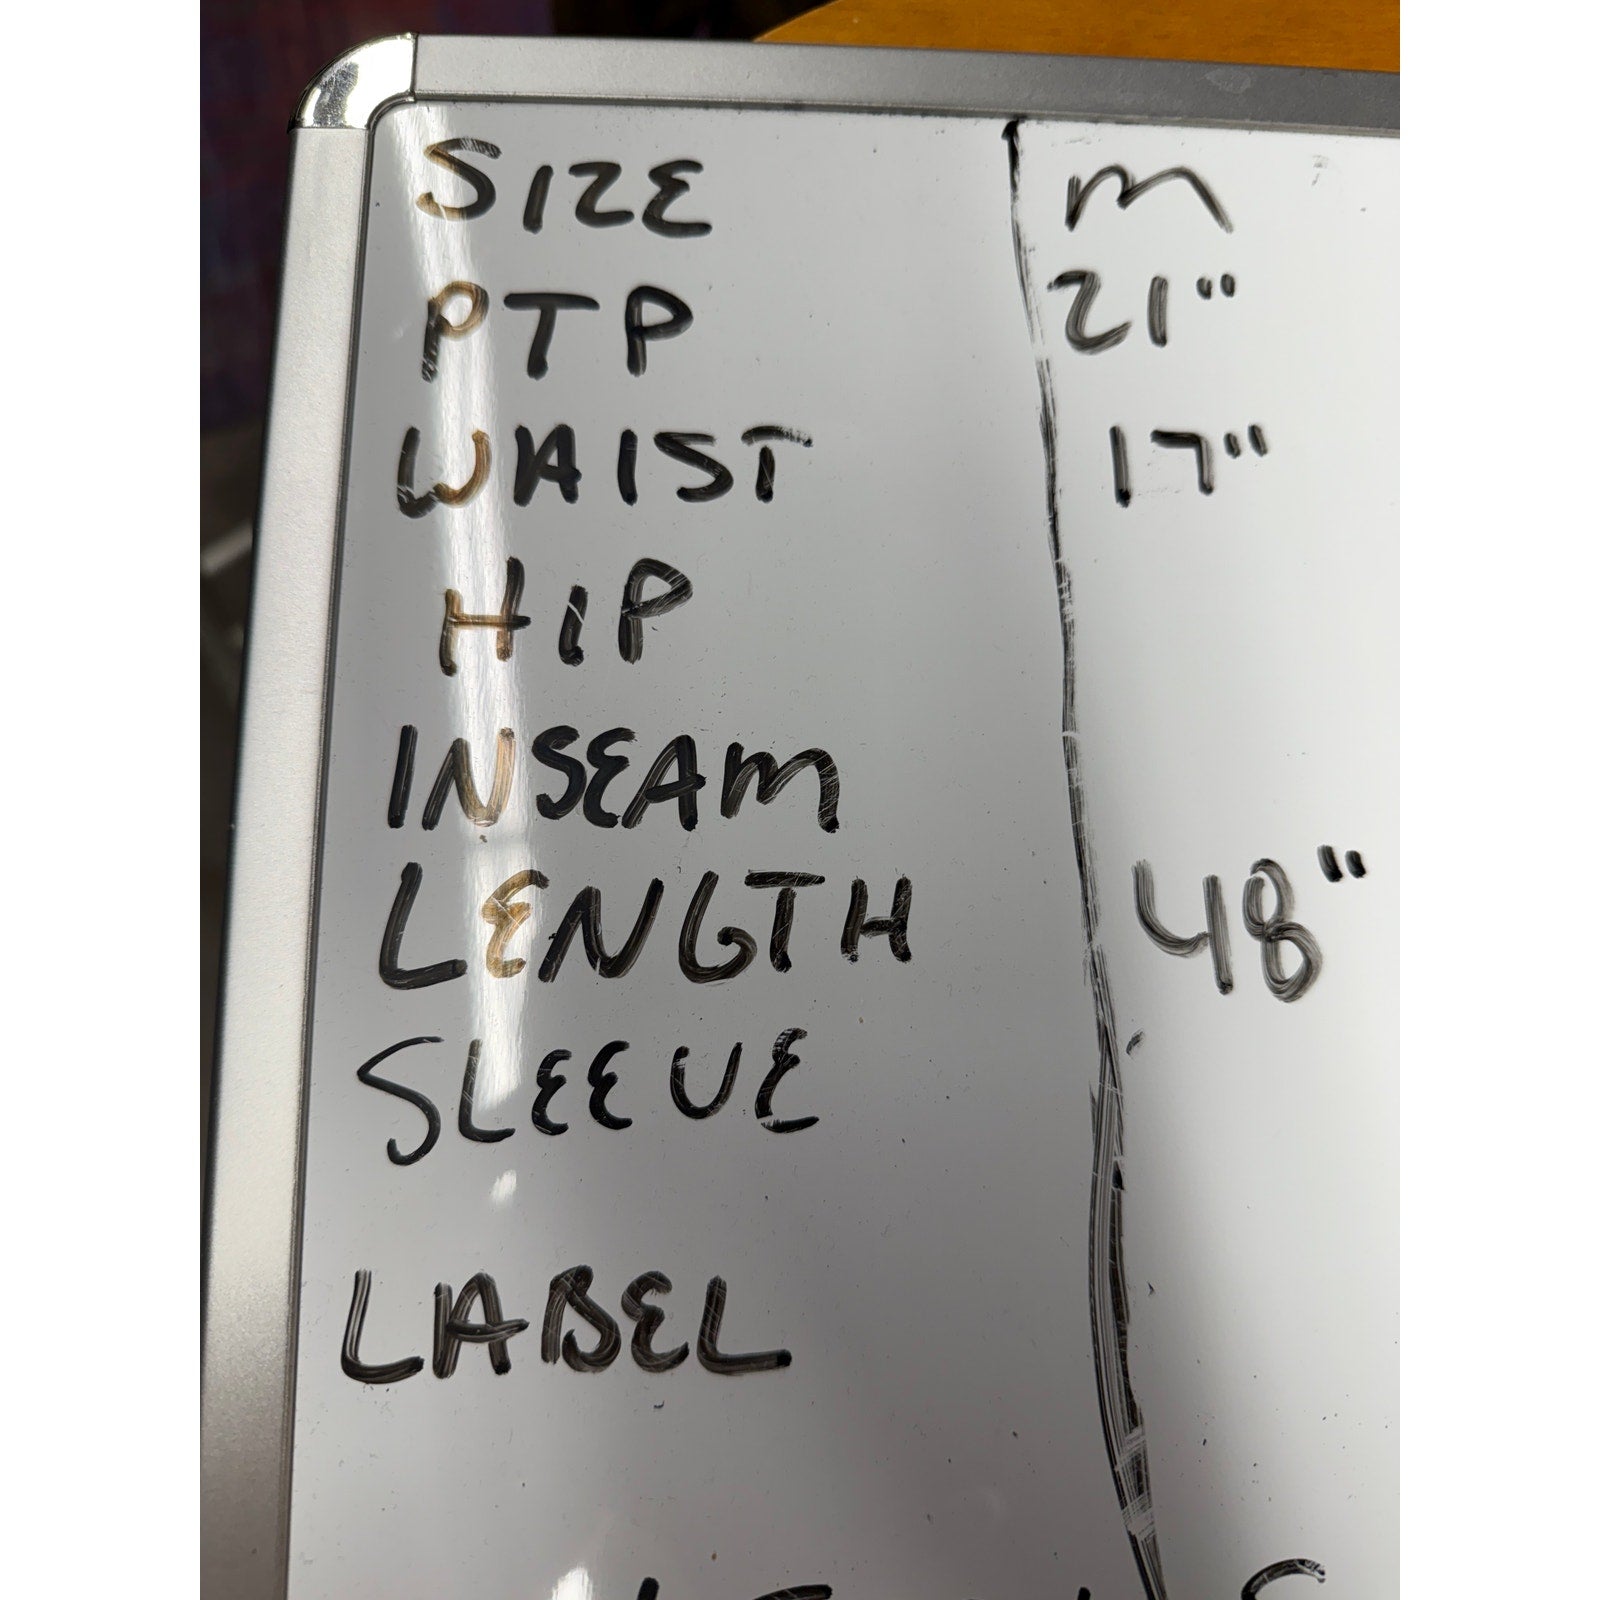 SIZE M
PTP 21"
WAIST 17"
HIP
INSEAM
LENGTH 48"
SLEEVE
LABEL